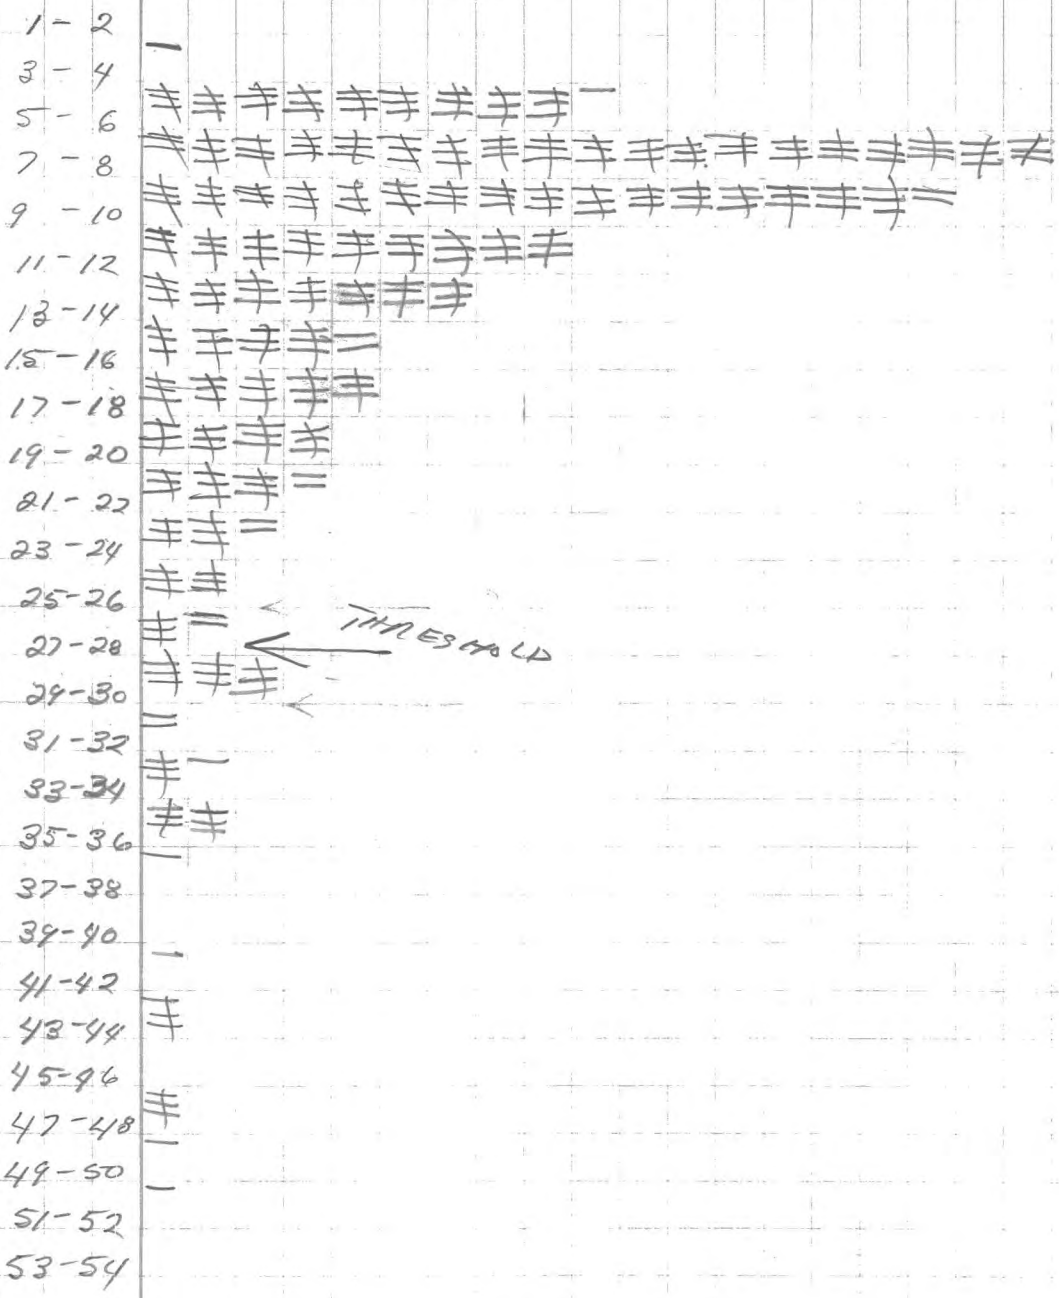 1 - 2
3 - 4
5 - 6
7 - 8
9 - 10
11 - 12
13 - 14
15 - 16
17 - 18
19 - 20
21 - 22
23 - 24
25 - 26
THRESHOLD
27 - 28
29 - 30
31 - 32
33 - 34
35 - 36
37 - 38
39 - 40
41 - 42
43 - 44
45 - 46
47 - 48
49 - 50
51 - 52
53 - 54